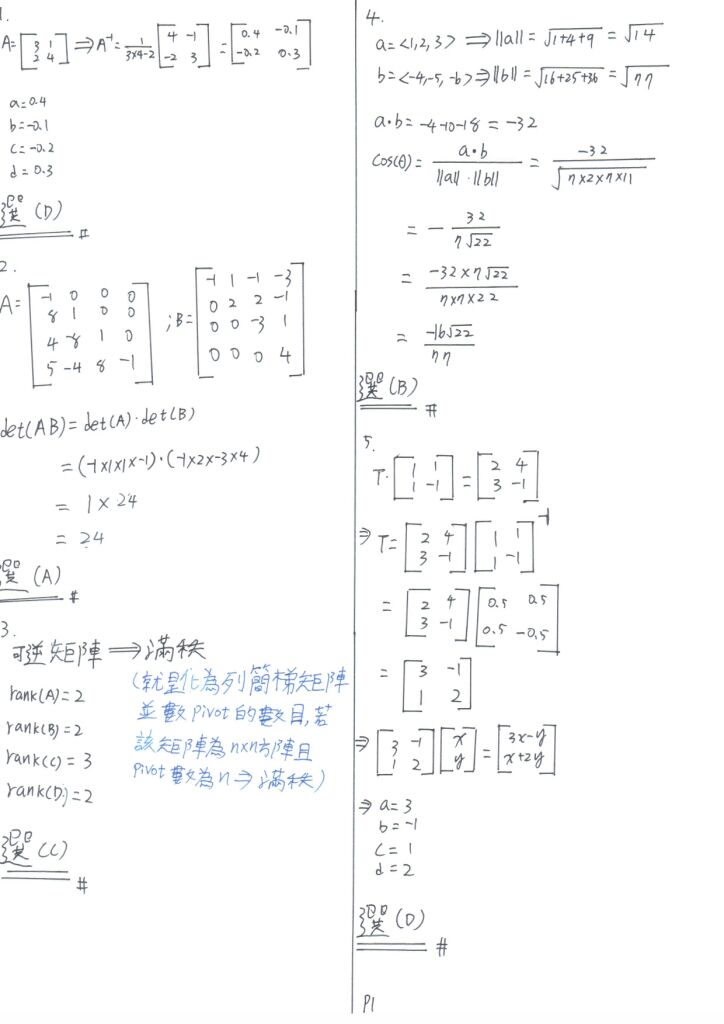 1.
A=[3 1; 2 4] ⇒ A⁻¹= 1/(3×4-2) [4 -1; -2 3] = [0.4 -0.1; -0.2 0.3]
a=0.4
b=-0.1
c=-0.2
d=0.3
選(D)
#
2.
A=[-1 0 0 0; 8 1 0 0; 4 -8 1 0; 5 -4 8 -1] ; B=[-1 1 -1 -3; 0 2 2 -1; 0 0 -3 1; 0 0 0 4]
det(AB)=det(A)·det(B)
=(-1×1×1×-1)·(-1×2×-3×4)
= 1×24
= 24
選(A)
#
3.
可逆矩陣 ⟹ 滿秩
rank(A)=2
rank(B)=2
rank(C)=3
rank(D)=2
(就是化為列簡梯矩陣
並數pivot的數目,若
該矩陣為n×n方陣且
pivot數為n ⇒ 滿秩)
選(C)
#
4.
a=<1,2,3> ⇒ ||a||=√(1+4+9) = √14
b=<-4,-5,-6> ⇒ ||b||=√(16+25+36) = √77
a·b=-4-10-18=-32
cos(θ)= a·b/(||a||·||b||) = -32/√(7×2×7×11)
= - 32/(7√22)
= (-32×7√22)/(7×7×22)
= -16√22/77
選(B)
#
5.
T·[1 1; 1 -1]=[2 4; 3 -1]
⇒ T=[2 4; 3 -1][1 1; 1 -1]⁻¹
=[2 4; 3 -1][0.5 0.5; 0.5 -0.5]
=[3 -1; 1 2]
⇒ [3 -1; 1 2][x; y]=[3x-y; x+2y]
⇒ a=3
b=-1
c=1
d=2
選(D)
#
P1